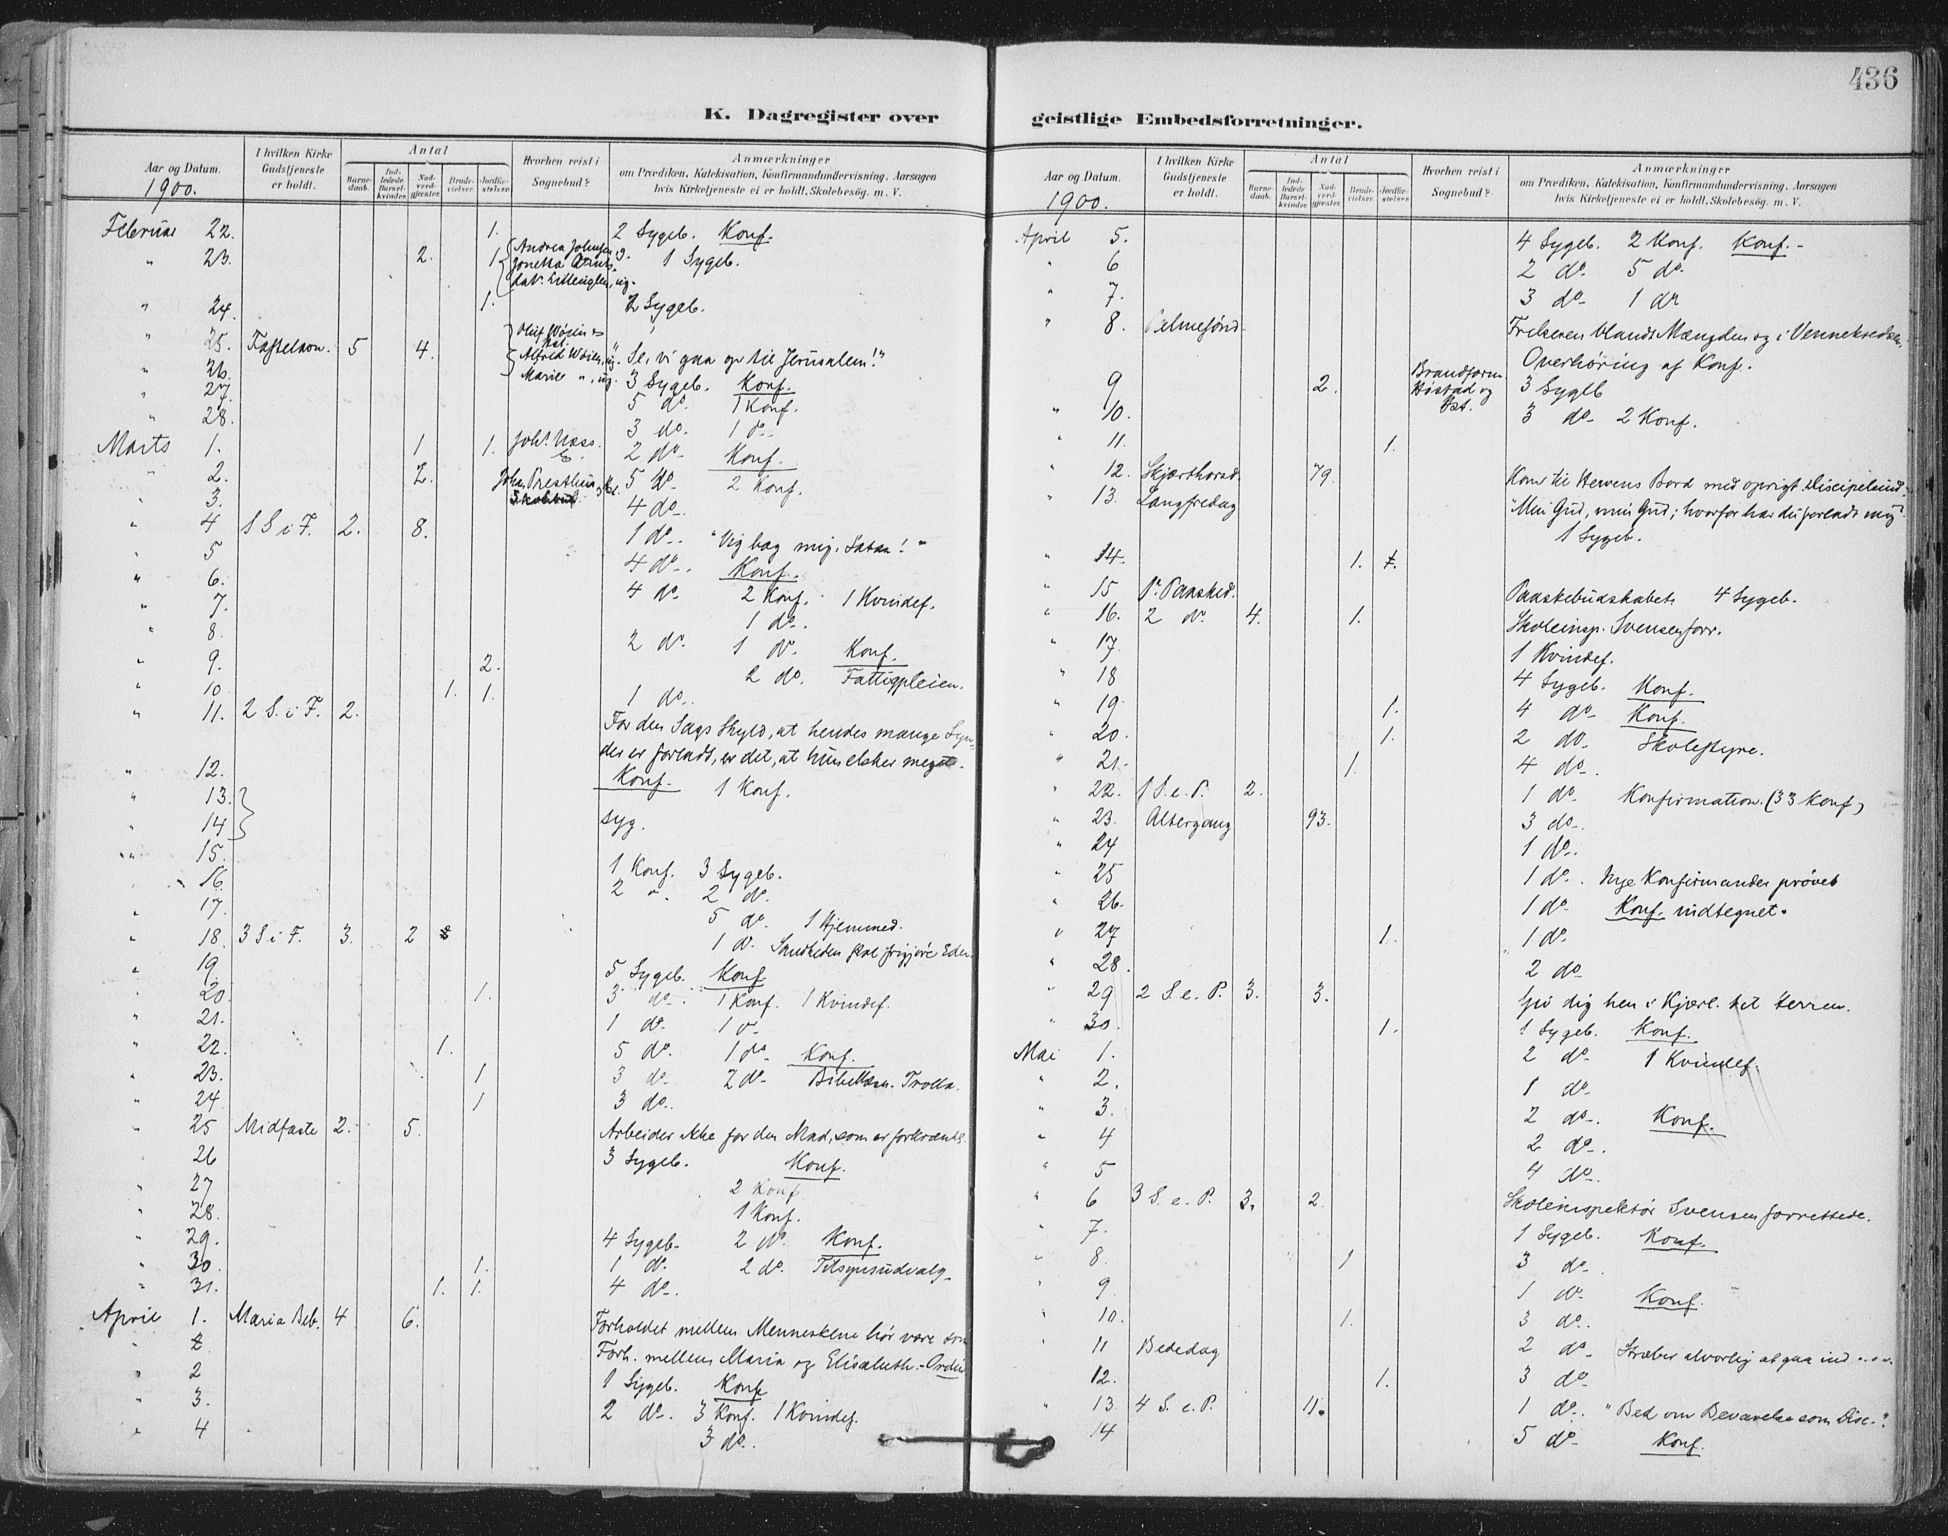 436
K. Dagregister over
Aar og Datum. 1900.
I hvilken Kirke Gudstjeneste er holdt.
Antal
Barne-daab.
Ind-ledede Barsel-kvinder.
Nad-verd-gjester.
Brude-vielser.
Jordfæ-stelser.
Hvorhen reist i Sognebud?
Anmærkninger
om Prædiken, Katekisation, Konfirmandundervisning, Aarsagen
hvis Kirketjeneste ei er holdt, Skolebesøg. m. V.
Februar 22. 1. 2 Sygeb. Konf.
" 23. 2. 1. Andrea Johnsen, Jonetta 1 Sygeb.
" 24. 1. 2 Sygeb.
" 25. Fastelavn. 5 4. "Se, vi gaa op til Jerusalem!"
" 26. 3 Sygeb. Konf.
" 27. 5 do. 1 Konf.
" 28. 3 do. 1 do.
Marts 1. 1 1. Joh. Næss. 2 do. Konf.
" 2. 2. 5 do. 2 Konf.
" 3. 4 do.
" 4 1 S i F. 2. 8. 1 do. "Vig bag mig, Satan!"
" 5 4 do. Konf.
" 6. 4 do. 2 Konf. 1 Kvindef.
" 7. 1 do.
" 8. 2 do. 1 do. Konf.
" 9. 2. 2 do. Fattigpleien.
" 10. 1. 1. 1 do.
" 11. 2 S. i F. 2. For den Sags Skyld, at hendes mange Syn-
der er forladt, er det, at hun elsker meget.
" 12. Konf. 1 Konf.
" 13.
" 14 syg.
" 15.
16. 1 Konf. 3 Sygeb.
" 17. 2 " 2 do.
5 do. 1 Hjemmed.
" 18. 3 S i F. 3. 2 1 do. Sandheden skal frigjøre Eder.
" 19 5 Sygeb. Konf
" 20. 1. 3 do. 1 Konf. 1 Kvindef.
" 21. 1 do. 1 do
" 22. 1. 5 do. 1 do Konf.
" 23. 1 3 do. 2 do. Trolla.
" 24 1 3 do.
" 25 Midfaste 2. 5. Arbeider ikke for den Mad, som er forkrænk.
" 26 3 Sygeb. Konf.
" 27 2 Konf
" 28. 1 Konf.
" 29. 4 Sygeb. 2 do. Konf.
" 30. 1. 1 do. 2 do. Tilsynsudvalg
" 31. 1. 1. 4 do.
April 1. Maria Beb. 4 6. Forholdet mellem Menneskene bør være som
Forh. mellem Maria og Elisabeth.
" 2 1 Sygeb. Konf
" 3. 2 do. 3 Konf. 1 Kvindef.
" 4 3 do.
geistlige Embedsforretninger.
Aar og Datum. 1900.
I hvilken Kirke Gudstjeneste er holdt.
Antal
Barne-daab.
Ind-ledede Barsel-kvinder.
Nad-verd-gjester.
Brude-vielser.
Jordfæ-stelser.
Hvorhen reist i Sognebud?
Anmærkninger
om Prædiken, Katekisation, Konfirmandundervisning, Aarsagen
hvis Kirketjeneste ei er holdt, Skolebesøg. m. V.
April 5. 4 Sygeb. 2 Konf. Konf.
" 6 2 do. 5 do.
" 7. 3 do. 1 do
" 8. Palmesønd. Frelseren blandt Mængden og i Vennekredsen.
Overhøring af Konf.
9 2. 3 Sygeb
" 10. 3 do. 2 Konf.
" 11. 1.
" 12. Skjærthorsd. 79. Kom til Herrens Bord med oprigt. Discipelsind.
" 13. Langfredag "Min Gud, min Gud; hvorfor har du forladt mig"
1 Sygeb.
" 14. 1. 1.
" 15 1. Paasked. Paaskebudskabet. 4 Sygeb.
" 16. 2 do. 4. 1. Skoleinsp. Svensen forr.
" 17. 1 Kvindef.
" 18 4 Sygeb. Konf.
" 19. 1. 4 do. Konf.
" 20. 1. 2 do. Skolestyre.
" 21. 1. 4 do.
" 22. 1 S. e. P. 2. 1 do. Konfirmation. (33 Konf)
" 23. Altergang 93. 3 do.
" 24 1 do.
" 25 1 do. Nye Konfirmander prøvet
" 26. 1 do. Konf. indtegnet.
" 27 1. 1 do.
" 28. 2 do
" 29 2 S e. P. 3. 3. Giv dig hen i Kjærl. til Herren.
" 30. 1. 1 Sygeb. Konf.
Mai 1. 2 do. 1 Kvindef.
" 2. 1 do.
" 3. 2 do. Konf.
" 4 2 do.
" 5 4 do.
" 6 3 S. e. P. 3. 2. Skoleinspektør Svensen forrettede.
" 7. 1 Sygeb. Konf.
" 8. 1 3 do.
" 9 1 do. Konf.
" 10. 1. 3 do.
" 11 Bededag 2 do. Stræber alvorlig at gaa ind ....
12. 1. 3 do.
" 13. 4 S. e. P. 11. 1 do. "Bed om Bevarelse som Disc."
14 5 do. Konf.